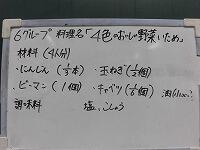 6グループ 料理名「4色のおいしい野菜いため」
材料(4人分)
・にんじん(1/3本) ・玉ねぎ(1/2個)
・ピーマン(1個) ・キャベツ(1/6個) 油
調味料 塩、こしょう